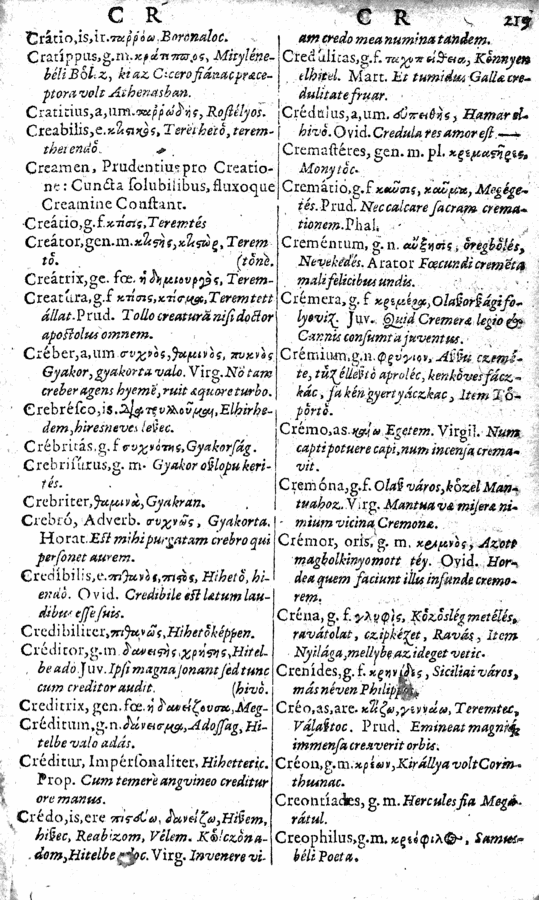 C R
C R
219
Crátio,is,ir.παρρόω, Boronaloc.
Cratippus,g.m.κράτιππος, Mitylénebéli
Böl.z, ki az Cicero fiának præceptora
volt Athenásban.
Cratitius,a,um.παρρώδης, Roſtélyos.
Creabilis,e.κτιςὸς, Teréthetö, teremthetendö.
Creamen, Prudentius pro Creatione
: Cuncta ſolubilibus, fluxoque
Creamine Conſtant.
Creátio,g.f.κτίσις,Teremtés
Creátor,gen.m.κτίςης,κτίςωρ, Teremtö.
(töné.
Creátrix,ge. fœ. ἡ δημιουργὸς, Terem-
Creatúra,g.f κτίσις,κτίσμα,Teremtett
állat.Prud. Tollo creaturā niſi doctor
apoſtolus omnem.
Créber,a,um συχνὸς,θαμινὸς, πυκνὸς
Gyakor, gyakorta valo. Virg. Nō tam
creber agens hyemē, ruit æquore turbo.
Crebréſco,is. Elhirhedem,
hiresneves leſzec.
Crébritás,g.f συχνότης,Gyakorſág.
Crebriſurus,g. m. Gyakor oſzlopu kerités.
Crebriter,θαμινὰ,Gyakran.
Crebró, Adverb. συχνῶς, Gyakorta.
Horat.Eſt mihi purgatam crebro qui
perſonet aurem.
Credibilis,e.πιθανὸς,πιςὸς, Hihetö, hiendö.
Ovid. Credibile eſt lætum laudibus
eſſe ſuis.
Credibiliter,πιθανῶς,Hihetöképpen.
Créditor,g.m. δανειςὴς,χρήςης, Hitelbe
adó Juv. Ipſi magna ſonant ſed tunc
cum creditor audit.
(hivö.
Creditrix, gen. fœ. ἡ δανείζουσα, Meg-
Créditum,g.n.δάνεισμα,Adoſſag, Hitelbe
valo adás.
Créditur, Impérſonaliter, Hihettetic.
Prop. Cum temere anguineo creditur
ore manus.
Crédo,is,ere πιςεύω, δανείζω,Hiſzem,
hiſzec, Reabizom, Vélem. Költzönadom,
Hitelbe Virg. Invenere vi-
am credo mea numina tandem.
Credúlitas,g.f. ταχυπείθεια, Könnyen
elhitel. Mart. Et tumidus Gallæ credulitate
fruar.
Crédulus,a,um. εὐπειθὴς, Hamar elhivö.
Ovid. Credula res amor eſt.—
Cremaſtéres, gen. m. pl. κρεμαςῆρες,
Monytöc.
Cremátio,g.f καῦσις, καῦμα, Megégetés.
Prud. Nec calcare ſacram cremationem.
Phal.
Creméntum, g. n. αὔξησις, öregbölés,
Nevekedés. Arator Fœcundi cremēta
mali felicibus undis.
Crémera, g. f κρεμέρα,Olaſzorſzági folyoviz.
Juv. Quid Cremeræ legio &
Cannis conſumta juventus.
Crémium,g.n.φρύγιον, Aſzú czeméte,
tüzéllesztö aproléc, kenköves fáczkác,
fa kén gyertyáczkac, Item Töpörtö.
Crémo,as.καίω Egetem. Virgil. Num
capti potuere capi,num incenſa cremavit.
Cremóna,g.f. Olaſz város, közel Mantuahoz.
Virg. Mantua væ miſeræ nimium
vicina Cremonæ.
Crémor, oris, g. m. κριμνὸς, Azott
magbol kinyomott téy. Ovid. Hordea
quem faciunt illis infunde cremorem.
Créna, g. f. γλυφὶς, Közösſég metélés,
ravátolat, czipkézet, Ravás, Item
Nyilága,mellybe az ideget vetic.
Crenídes, g.f. κρηνίδες, Siciliai város,
más néven Philippi.
Créo,as,are. κτίζω,γεννάω, Teremtec,
Választoc. Prud. Emineat magniq;
immenſa creaverit orbis.
Créon,g.m.κρέων,Király a volt Corinthusnac.
Creontíades, g.m. Hercules fia Megarátul.
Creophilus,g.m. κρεόφιλος, Samusbéli
Poeta.